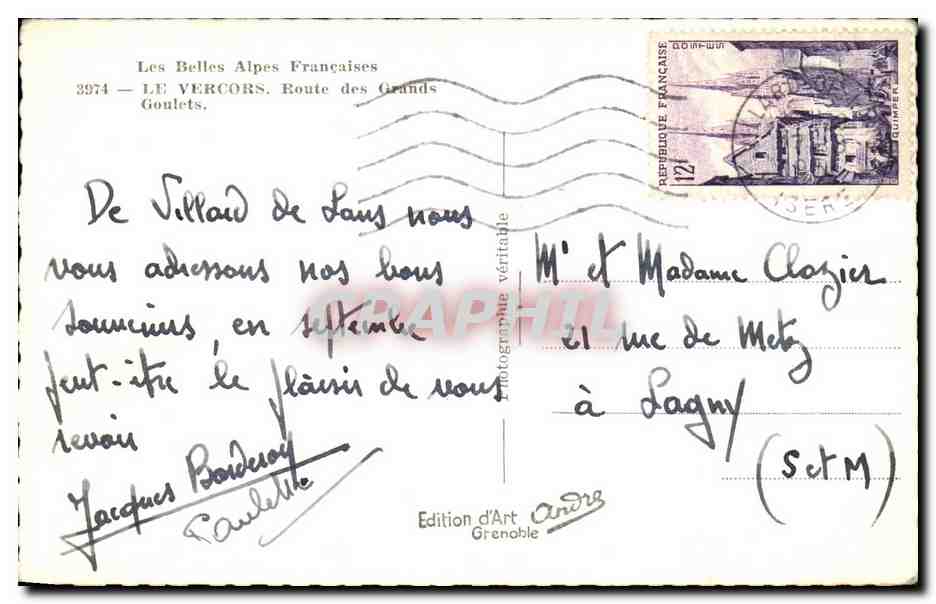 Les Belles Alpes Françaises
3974 — LE VERCORS. Route des Grands
Goulets.
De Villard de Lans nous
vous adressons nos bons
souvenirs, en septembre
peut-être le plaisir de vous
revoir
Jacques Borderoy
Paulette
Photographie véritable
Edition d'Art André
Grenoble
REPUBLIQUE FRANÇAISE
POSTES
12F
QUIMPER
ISERE
Mr et Madame Clozier
21 rue de Metz
à Lagny
(S et M)
GRAPHIL